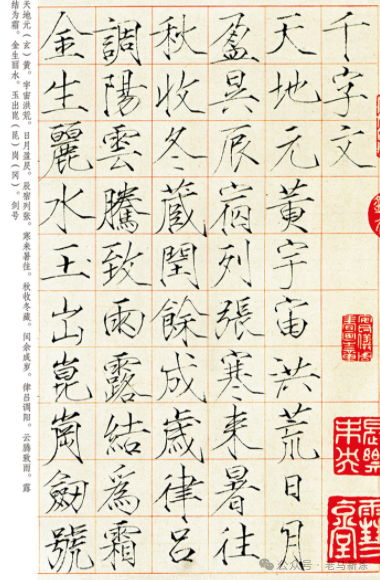 千字文
天地元黃宇宙洪荒日月
盈昃辰宿列張寒来暑往
秋收冬蔵閏餘成歲律呂
調陽雲騰致雨露結爲霜
金生麗水玉出崑崗劍號
天地元（玄）黄。宇宙洪荒。日月盈昃。辰宿列张。寒来暑往。秋收冬藏。闰余成岁。律吕调阳。云腾致雨。露
结为霜。金生丽水。玉出崑（昆）岗（冈）。剑号
長樂未央
公众号